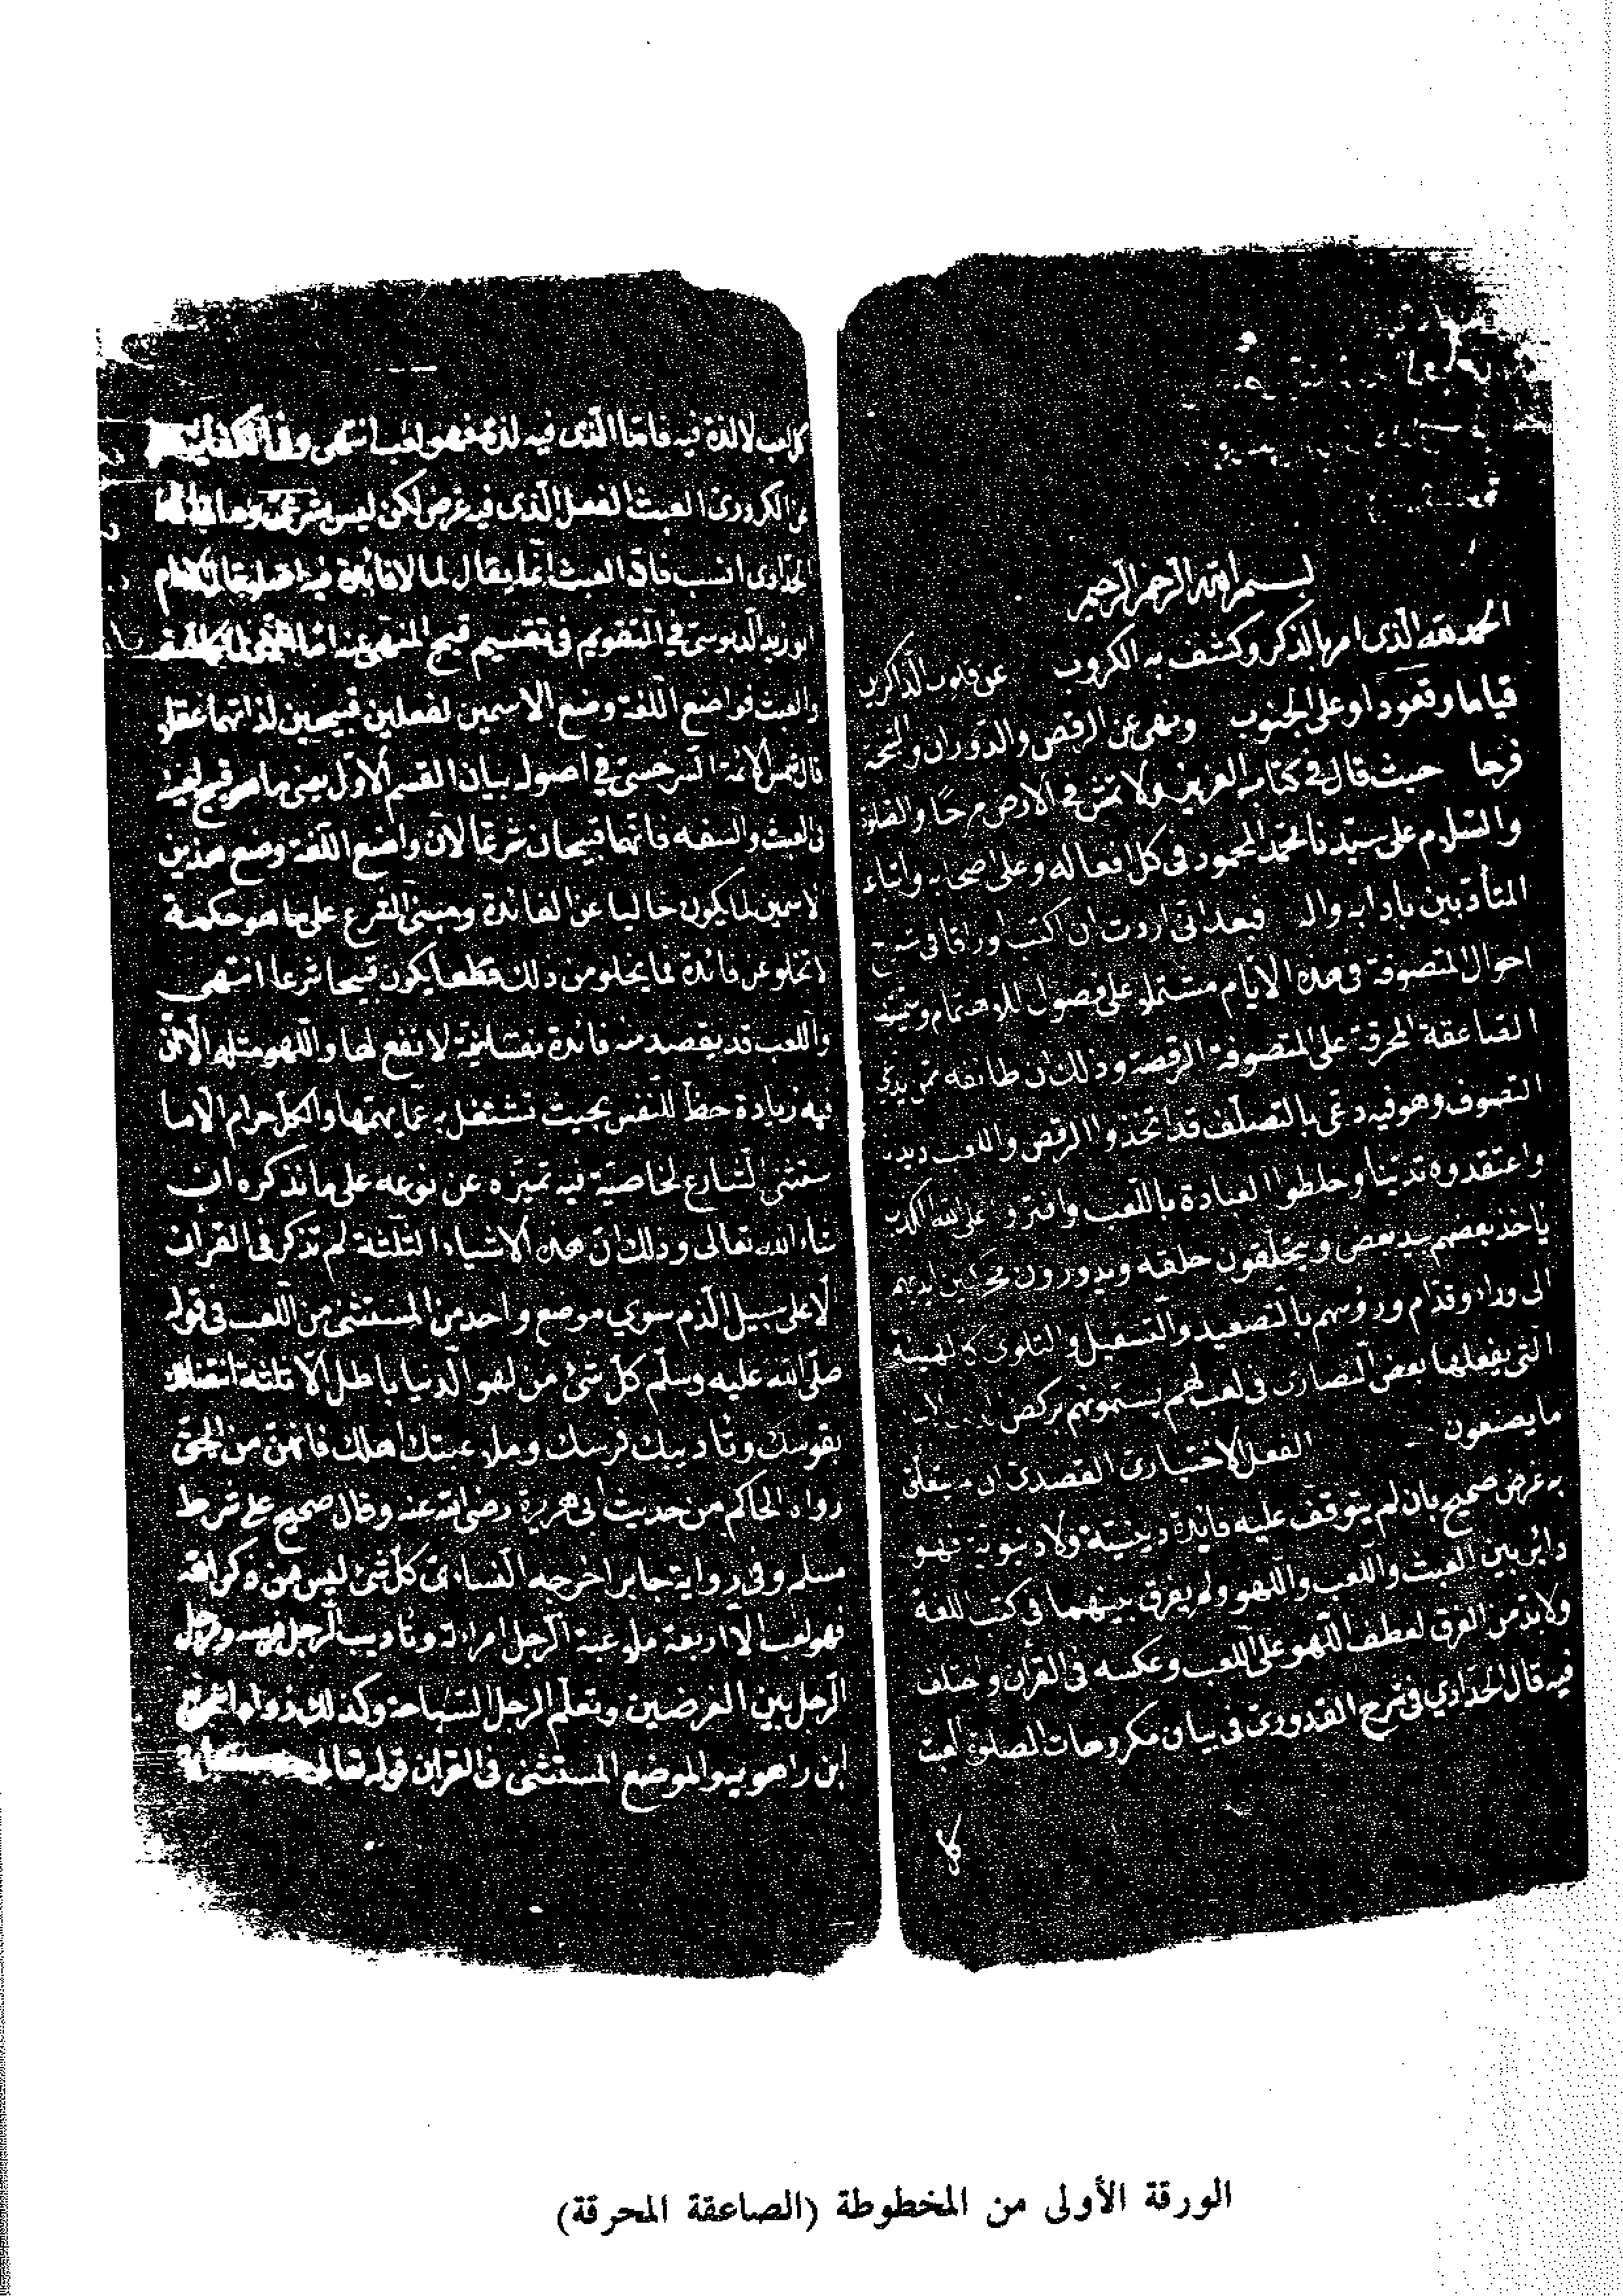 بسم الله الرحمن الرحيم
الحمد لله الذي امر بالذكر وكشف به الكروب عن قلوب الذاكرين
قياما وقعودا وعلى الجنوب ونهى عن الرقص والدوران
فرحا حيث قال في كتابه العزيز ولا تمش في الارض مرحا والصلوة
والسلام على سيدنا محمد المحمود في كل افعاله وعلى اصحابه
المتأدبين بآدابه واله فبعد اني اردت ان اكتب اوراقا في
احوال المتصوفة في هذه الايام مشتملا على فصول
الصاعقة المحرقة على المتصوفة الرقصة وذلك ان طائفة ممن يدعي
التصوف وهو فيه دعي بالتصلف قد اتخذوا الرقص واللعب
واعتقدوه تدينا وخلطوا العبادة باللعب وافتروا على الله الكذب
ياخذ بعضهم بيد بعض ويحلقون حلقة ويدورون محركين
الى وراء وقدام ورؤسهم بالتصعيد والتسفيل والتلوي
التي يفعلها بعض النصارى في لعب لهم يسمونه بركض
ما يصنعون الفعل الاختياري القصدي ان لم يتعلق
به غرض صحيح بان لم يتوقف عليه فائدة دينية ولا دنيوية فهو
دائر بين العبث واللعب واللهو ولم يفرق بينهما في كتب اللغة
ولا بد من الفرق لعطف اللهو على اللعب وعكسه في القرآن واختلف
فيه قال الحدادي في شرح القدوري في بيان مكروهات الصلوة العبث
كل
كل لعب لا لذة فيه فاما الذي فيه لذة فهو لعب انتهى
عن الكردري العبث الفعل الذي فيه غرض لكن ليس بشرعي وما قاله
الحدادي انسب فان العبث انما يقال لما لا فائدة فيه اصلا قال الامام
ابو زيد الدبوسي في التقويم في تقسيم قبح المنهي عنه
والعبث فواضع اللغة وضع الاسمين لفعلين قبيحين لذاتهما عقلا
قال شمس الائمة السرخسي في اصوله بيان القسم الاول يعني ما هو قبيح لعينه
العبث والسفه فانهما قبيحان شرعا لان واضع اللغة وضع هذين
الاسمين لما يكون خاليا عن الفائدة ومبنى الشرع على ما هو حكمة
لا تخلو عن فائدة فما يخلو من ذلك قطعا يكون قبيحا شرعا انتهى
واللعب قد يقصد منه فائدة نفسانية لا نفع لها واللهو مثله الا ان
فيه زيادة حظ للنفس بحيث تشتغل به عما يهمها والكل حرام الا ما
استثنى الشارع لخاصية فيه تميزه عن نوعه على ما نذكره ان
شاء الله تعالى وذلك ان هذه الاشياء الثلثة لم تذكر في القران
الا على سبيل الذم سوى موضع واحد من المستثنى من اللعب في قوله
صلى الله عليه وسلم كل شئ من لهو الدنيا باطل الا ثلثة انتضالك
بقوسك وتأديبك فرسك وملاعبتك اهلك فانهن من الحق
رواه الحاكم من حديث ابي هريرة رضي الله عنه وقال صحيح على شرط
مسلم وفي رواية جابر اخرجه النسائي كل شئ ليس من ذكر الله
فهو لعب الا اربعة ملاعبة الرجل امراته وتأديب الرجل فرسه
الرجل بين الغرضين وتعلم الرجل السباحة وكذلك رواه
ابن راهويه والموضع المستثنى في القران قوله تعالى
الورقة الأولى من المخطوطة (الصاعقة المحرقة)